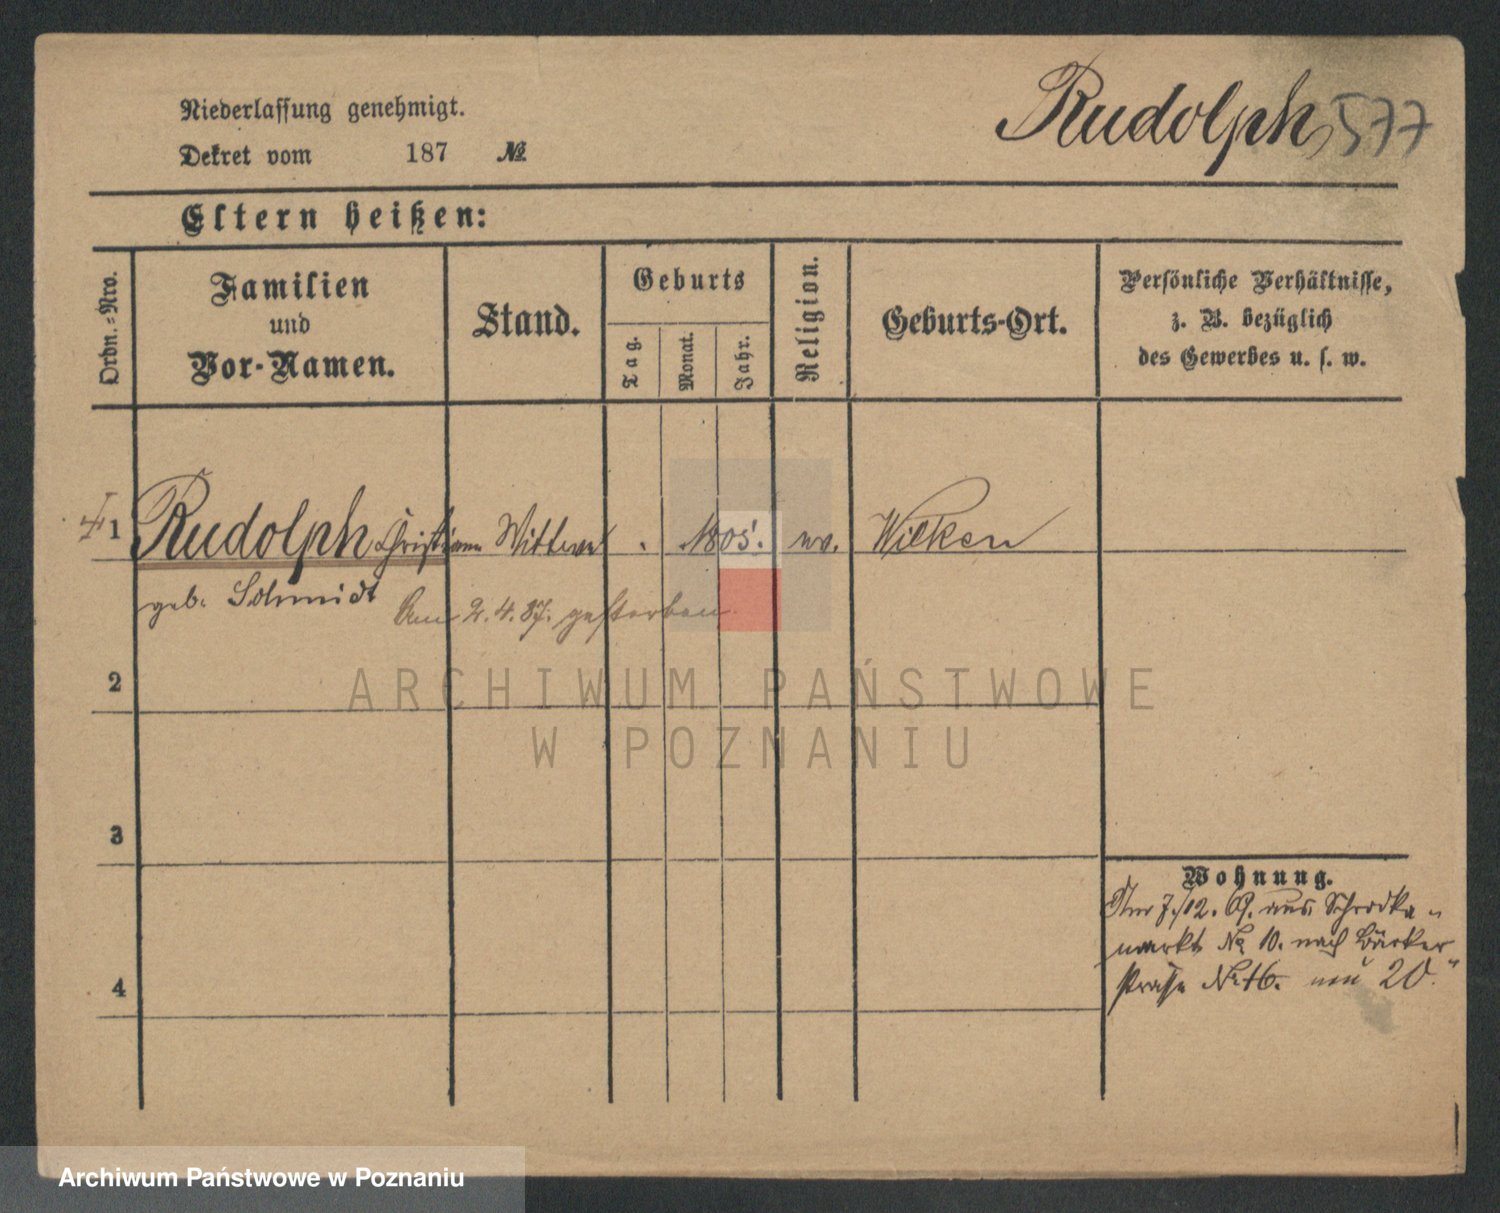 Rudolph 577
Niederlassung genehmigt.
Dekret vom 187 №
Eltern heißen:
Ordn.-Nro.
Familien
und
Vor-Namen.
Stand.
Geburts
Tag.
Monat.
Jahr.
Religion.
Geburts-Ort.
Persönliche Verhältnisse,
z. B. bezüglich
des Gewerbes u. s. w.
1 Rudolph Wittwe 1805. ev. Wilken
geb. Schmidt
Am 2.4.87. gestorben
2
3
4
Wohnung.
7./12. 69. aus Schrodka-
markt No 10. nach Bäcker
straße No 16. neu 20.
ARCHIWUM PAŃSTWOWE
W POZNANIU
Archiwum Państwowe w Poznaniu